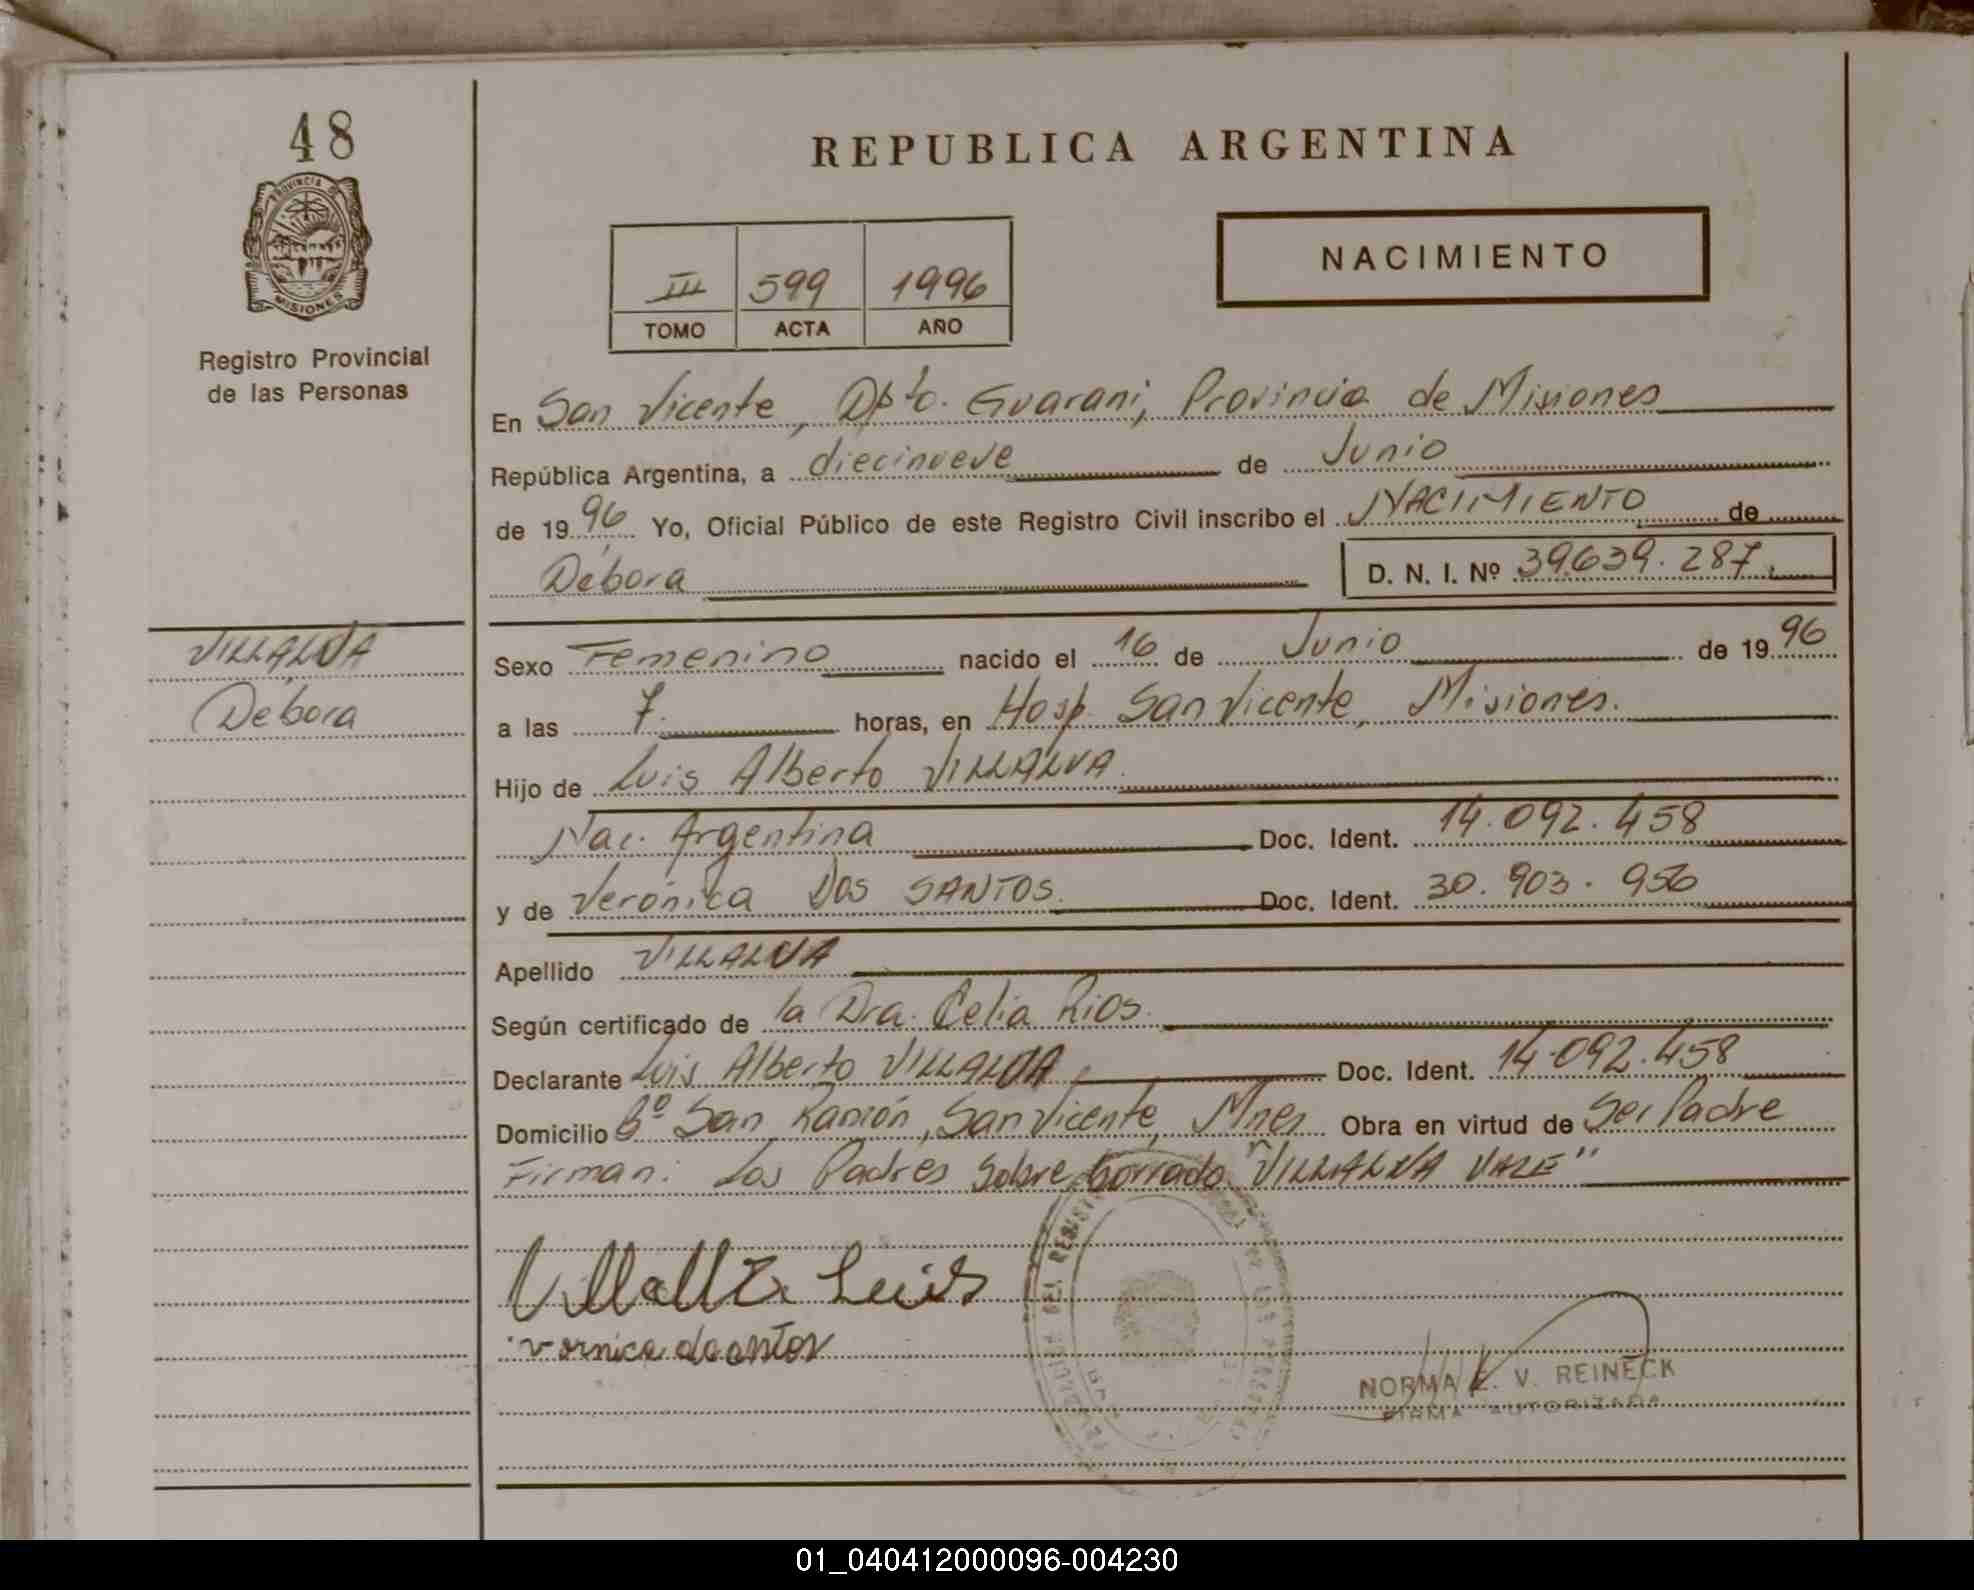 48
REPUBLICA ARGENTINA
PROVINCIA DE
MISIONES
NACIMIENTO
III 599 1996
TOMO ACTA AÑO
Registro Provincial
de las Personas
En San Vicente, Dpto. Guarani, Provincia de Misiones
República Argentina, a diecinueve de Junio
de 1996 Yo, Oficial Público de este Registro Civil inscribo el NACIMIENTO de
Débora D. N. I. Nº 39.639.287.
VILLALVA
Débora
Sexo Femenino nacido el 16 de Junio de 1996
a las 7. horas, en Hosp. San Vicente, Misiones.
Hijo de Luis Alberto VILLALVA.
Nac. Argentina Doc. Ident. 14.092.458
y de Verónica DOS SANTOS. Doc. Ident. 30.903.956
Apellido VILLALVA
Según certificado de la Dra. Celia Rios.
Declarante Luis Alberto VILLALVA Doc. Ident. 14.092.458
Domicilio Bº San Ramón, San Vicente, Mnes Obra en virtud de Ser Padre
Firman: Los Padres Sobre borrado "VILLALVA VALE"
Luis
NORMA V. REINECK
FIRMA AUTORIZADA
01_040412000096-004230